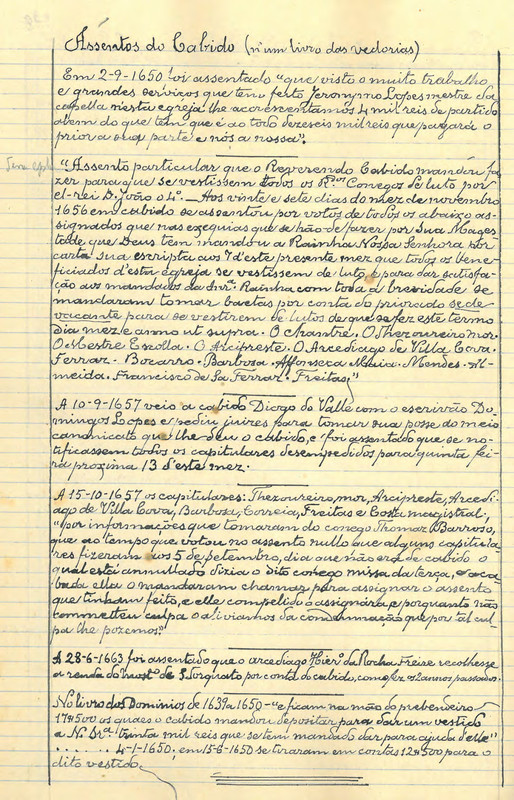 Assentos do Cabido (n'um livro das vedorias)
Em 2-9-1650 foi assentado "que visto o muito trabalho,
e grandes serviços que tem feito Jeronymo Lopes mestre da
capella n'esta egreja lhe acrescentamos 4 mil reis de partido
alem do que tem que é ao todo dezeseis mil reis que pagará o
prior a sua parte e nós a nossa".
"Assento particular que o Reverendo Cabido mandou fa
zer para que se vestissem todos os R.os Conegos de luto por
el-rei D. João o 4º. — Aos vinte e sete dias do mez de novembro
1656 em cabido se assentou por votos de todos os abaixo as-
signados que nas exequias que se hão de fazer por Sua Mages
tade que Deus tem mandou a Rainha Nossa Senhora por
carta sua escripta aos 7 d'este presente mez que todos os bene-
ficiados d'esta egreja se vestissem de luto, e para dar satisfa-
ção aos mandados da Snr.ª Rainha com toda a brevidade se
mandaram tomar baetas por conta do priorado sede
vacante para se vestirem de lutos de que se fez este termo
dia mez e anno ut supra. O chantre. O Thezoureiro mor.
O Mestre Escolla. O Arcipreste. O Arcediago de Villa Cova.
Ferraz. Bocarro. Barboza. Affonseca. Maia. Mendes. Al-
meida. Francisco de Sa Ferraz. Freitas."
A 10-9-1657 veio a cabido Diogo do Valle com o escrivão Do-
mingos Lopes e pediu juizes para tomar sua posse do meio
canonicato que lhe deu o cabido, e foi assentado que se no-
tificassem todos os capitulares desempedidos para quinta fei-
ra proxima 13 d'este mez.
A 15-10-1657 os capitulares: Thezoureiro, mor, Arcipreste, Arcedi-
ago de Villa Cova, Barboza, Correia, Freitas e Costa magistral,
"por informações que tomaram do conego Thomaz Barroso,
que ao tempo que votou no assento nullo que alguns capitula
res fizeram aos 5 de setembro, dia que não era de cabido o
qual está annullado dizia o dito conego missa da terça, e aca
bada ella o mandaram chamar para assignar o assento
que tinham feito, e elle compelido o assignára, e porquanto não
commetteu culpa o aliviamos da condemnação que por tal cul
pa lhe pozemos."
A 28-6-1663 foi assentado que o arcediago Hier.º da Rocha Freire recolhesse
a renda do most.º de S. Torquato por conta do cabido, como fez os 2 annos passados.
No livro dos Dominios de 1639 a 1650 - "e ficam na mão do prebendeiro
17$500 os quaes o cabido mandou depositar para dar um vestido
a N. Sr.ª trinta mil reis que se tem mandado dar para ajuda d'elle"
. . . . . . 4-1-1650; em 15-6-1650 se tiraram em contas 12$500 para o
dito vestido.